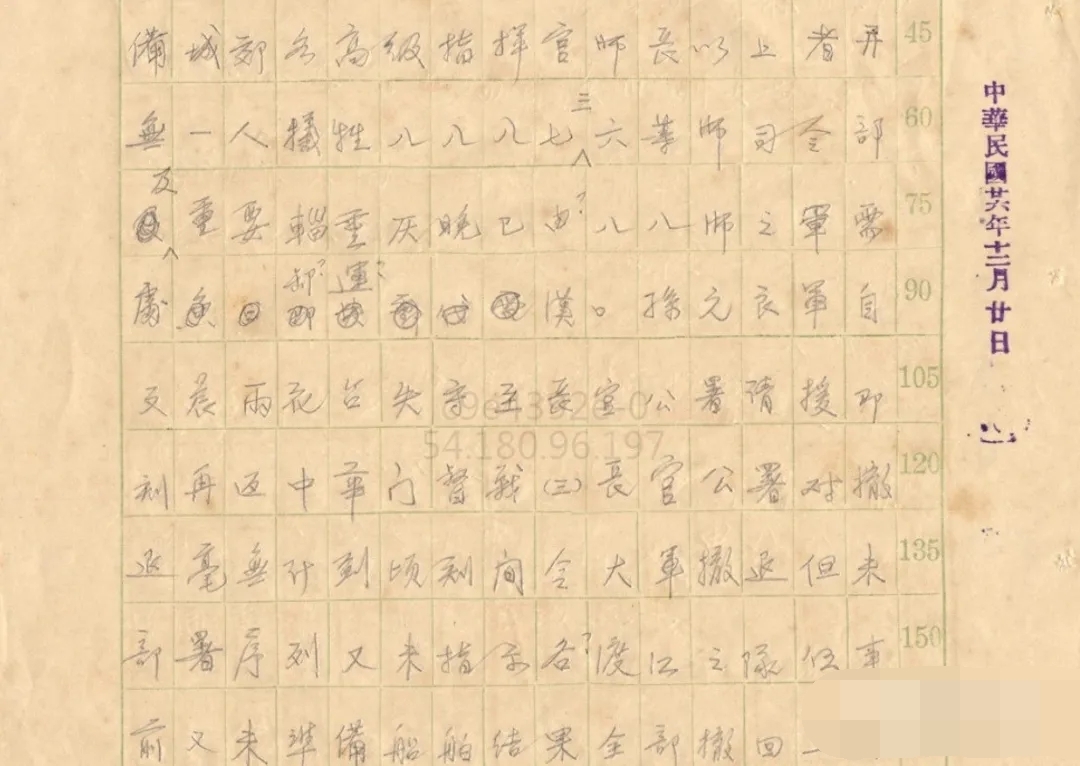 備城郊各高級指揮官師長以上者并 45
無一人犧牲八八八七三六等師司令部 60
及重要輜重灰晚已由?八八師之軍需 75
處卸?運?漢。孫元良軍自 90
文晨雨花台失守 長官公署請援即 105
刻再返中華門督戰(三)長官公署对撤 120
退毫無計劃頃刻間令大軍撤退但未 135
部署序列又未指示各?渡江之隊伍事 150
前又未準備船舶結果全部撤回一
中華民國廿六年十二月廿日
54.180.96.197